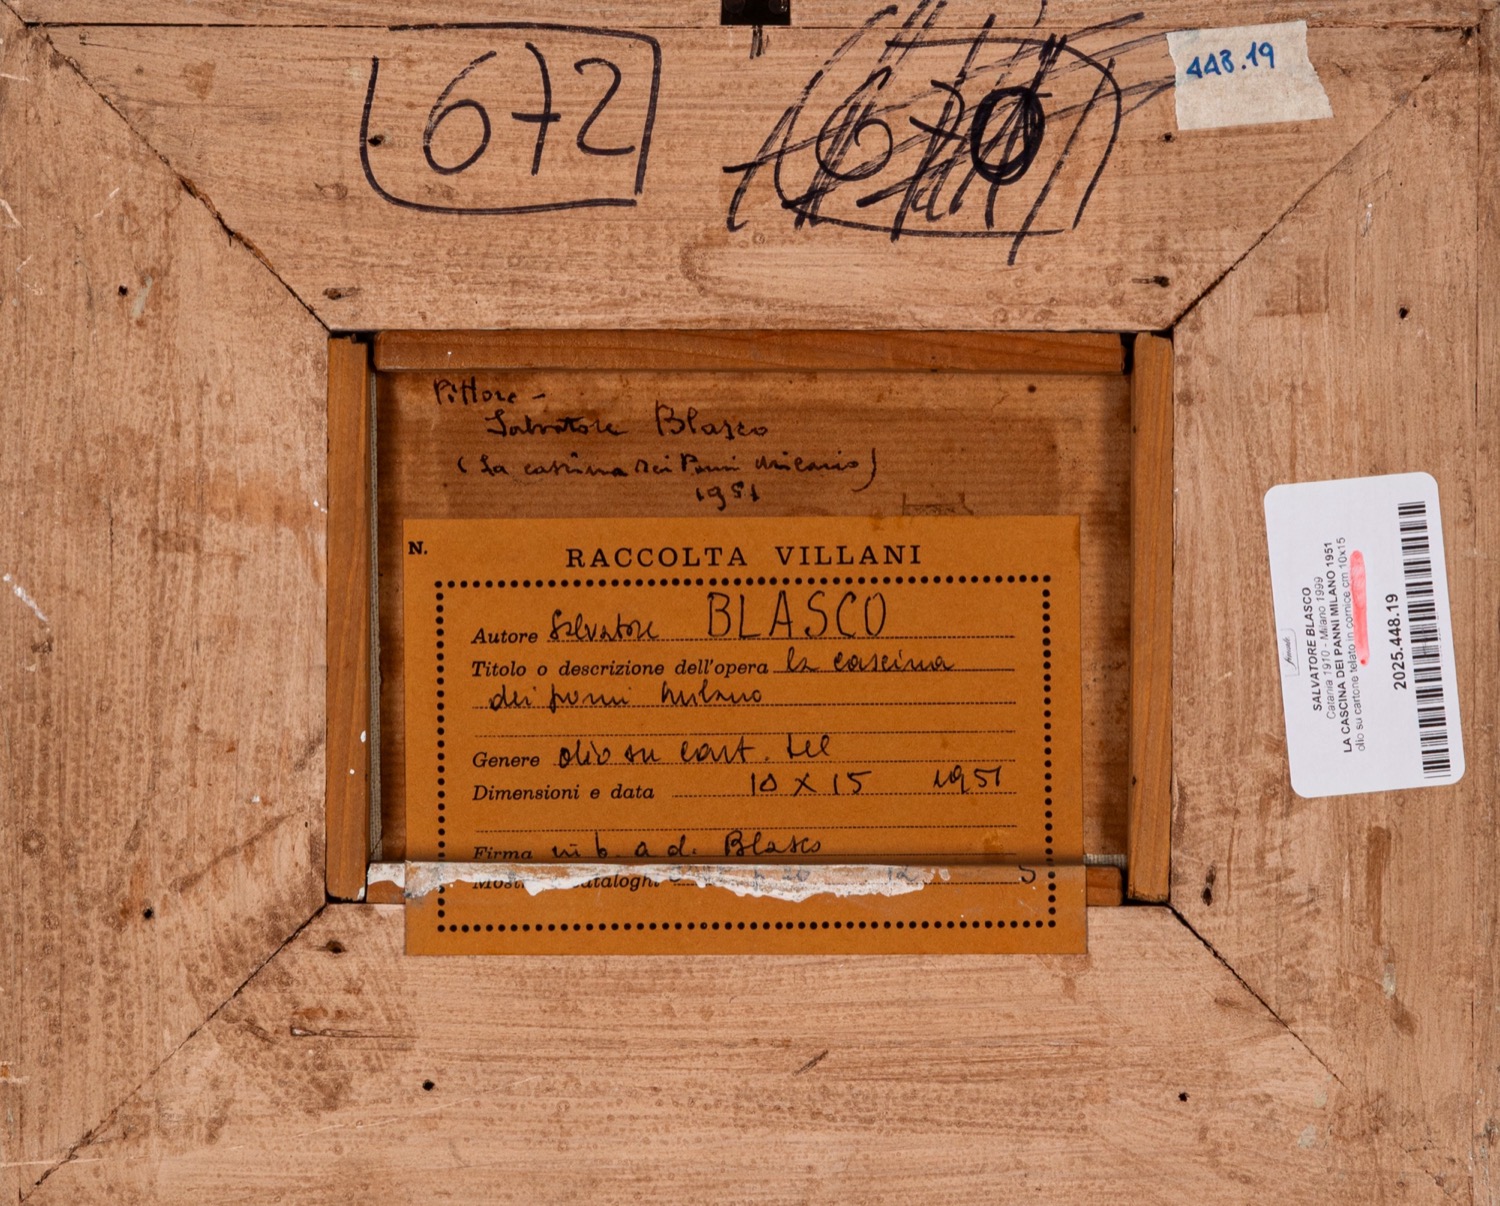 672
670
448.19
Pittore -
Salvatore Blasco
(La cascina dei Pomi Milano)
1951
N.
RACCOLTA VILLANI
Autore Salvatore BLASCO
Titolo o descrizione dell'opera la cascina
dei pomi Milano
Genere olio su cart. tel
Dimensioni e data 10 X 15 1951
Firma in b. a d. Blasco
SALVATORE BLASCO
Catania 1910 - Milano 1999
LA CASCINA DEI PANNI MILANO 1951
olio su cartone telato in cornice cm 10x15
2025.448.19